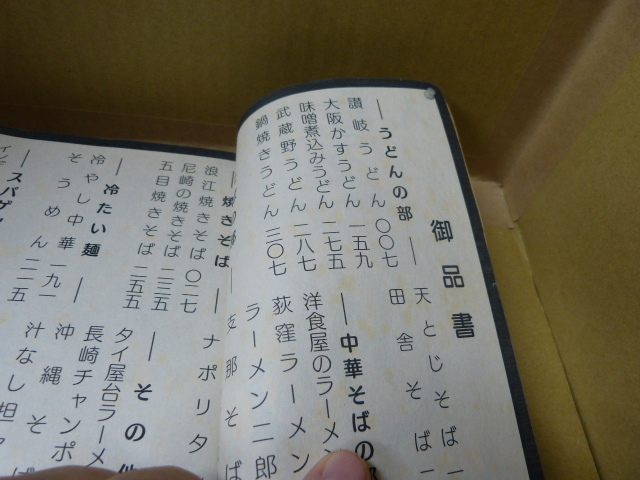 御品書
天とじそば一
田舎そば一
うどんの部
讃岐うどん 〇〇七
大阪かすうどん 一五九
味噌煮込みうどん 二七五
武蔵野うどん 二八七
鍋焼きうどん 三〇七
中華そばの
洋食屋のラーメン
荻窪ラーメン
ラーメン二郎
支那そば
焼きそば
浪江焼きそば 〇二七
尼崎の焼きそば 二三五
五目焼きそば 二五五
ナポリタ
冷たい麺
冷やし中華 一九一
そうめん 二二五
その他
タイ屋台ラーメ
長崎チャンポ
沖縄そば
汁なし担々
スパゲ